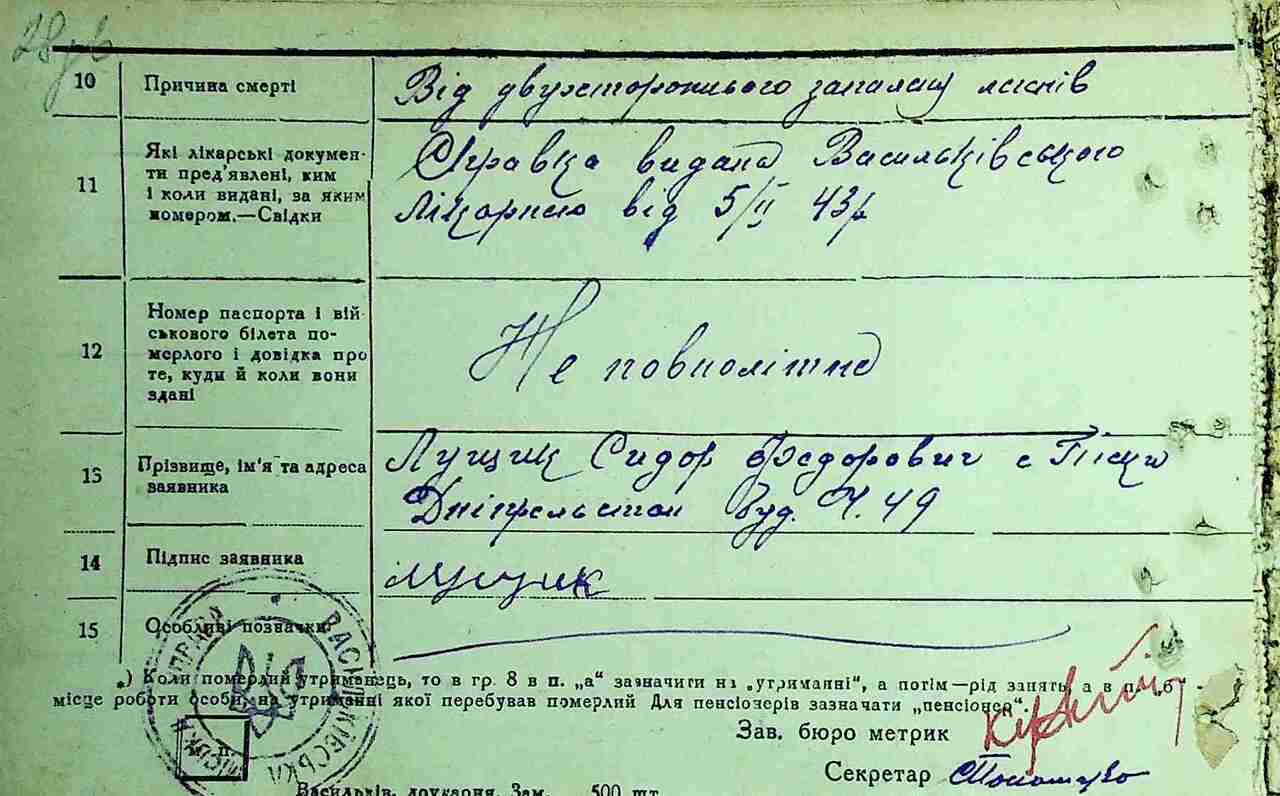 28
10 Причина смерті Від двухстороннього запаленя легенів
11 Які лікарські докумен-
ти пред'явлені, ким
і коли видані, за яким
номером.—Свідки
Справка видана Васильківського
лікарнею від 5/II 43р
12 Номер паспорта і вій-
ськового білета по-
мерлого і довідка про
те, куди й коли вони
здані
Не повнолітня
13 Прізвище, ім'я та адреса
заявника
Лущик Сидор Федорович с Піски
буд. Ч. 49
14 Підпис заявника Лущик
15 Особливі позначки
*) Коли померлий утриманець, то в гр. 8 в п. „а“ зазначити на „утриманні“, а потім—рід занять, а в п. „б“ -
місце роботи особи, на утриманні якої перебував померлий Для пенсіонерів зазначати „пенсіонер“.
ВАСИЛЬКІВСЬКА МІСЬКА УПРАВА
Зав. бюро метрик
Секретар
Васильків, друкарня, Зам. 500 шт.